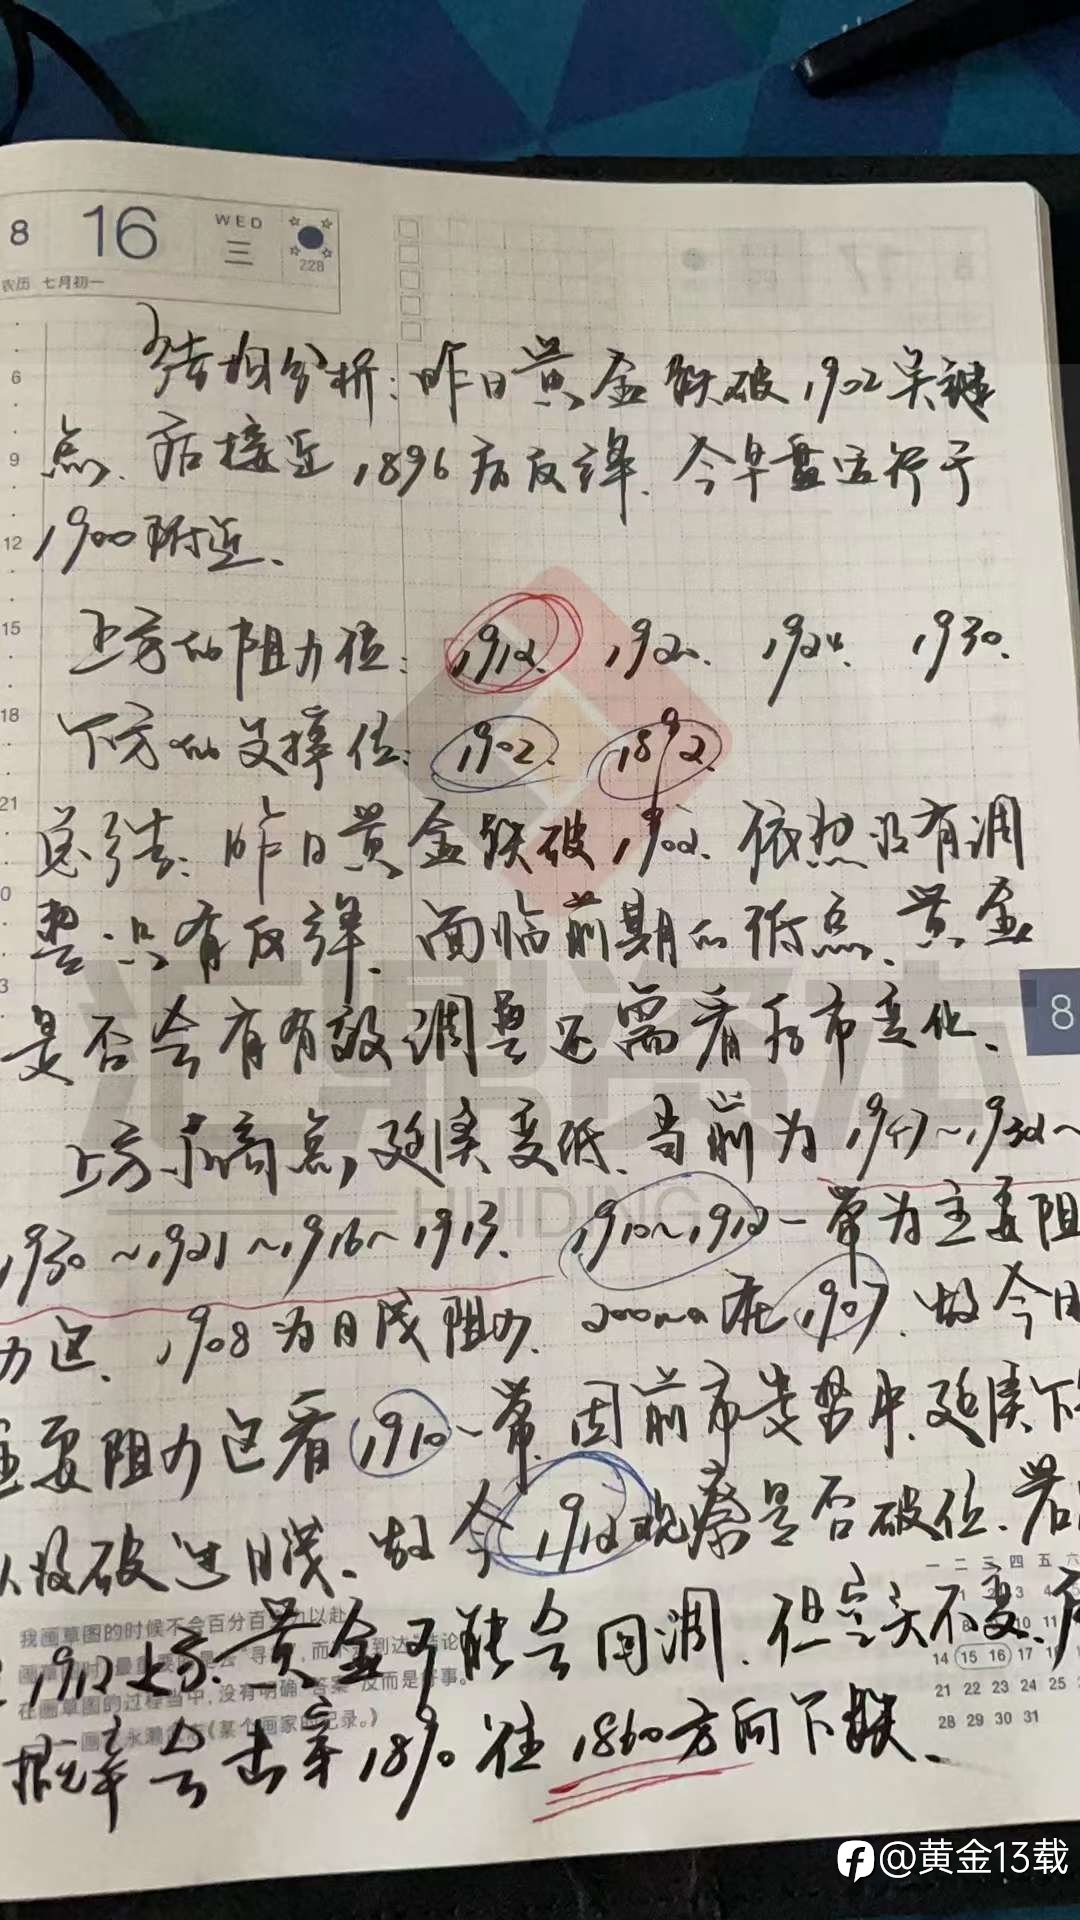 8 16 WED 三 228
农历 七月初一
结构分析：昨日黄金跌破1902关键
点、后接近1896后反弹、今早盘运行于
1900附近、
上方的阻力位：1912、1920、1924、1930、
下方的支撑位：1902、1892、
总结：昨日黄金跌破1902、依然没有调
整只有反弹、面临前期的低点、黄金
是否会有有效调整还需看后市变化、
上方高点延续变低、当前为1947～1932～
1930～1921～1916～1913、1910～1912一带为主要阻
力区、1908为日线阻力、200ma在1907、故今日
主要阻力区看1910一带、因前市走势中、延续下
没破过日线、故今1912观察是否破位、若
1912上方、黄金可能会回调、但空头不变、
概率会击穿1890往1860方向下跌、
6
9
12
15
18
21
0
3
8
汇鼎资本
HUIDING
我画草图的时候不会百分百 以赴
在画草图的过程当中，没有明确 答案 反而是好事。
(某个画家的记录。)
一 二 三 四 五 六
14 15 16 17
21 22 23 24 25
28 29 30 31
@黄金13载